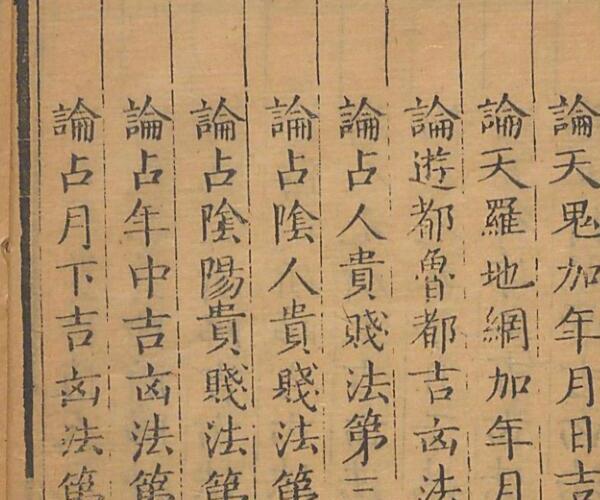 論天鬼加年月日吉
論天羅地網加年月
論遊都魯都吉凶法
論占人貴賤法第三
論占陰人貴賤法第
論占陰陽貴賤法第
論占年中吉凶法第
論占月下吉凶法第